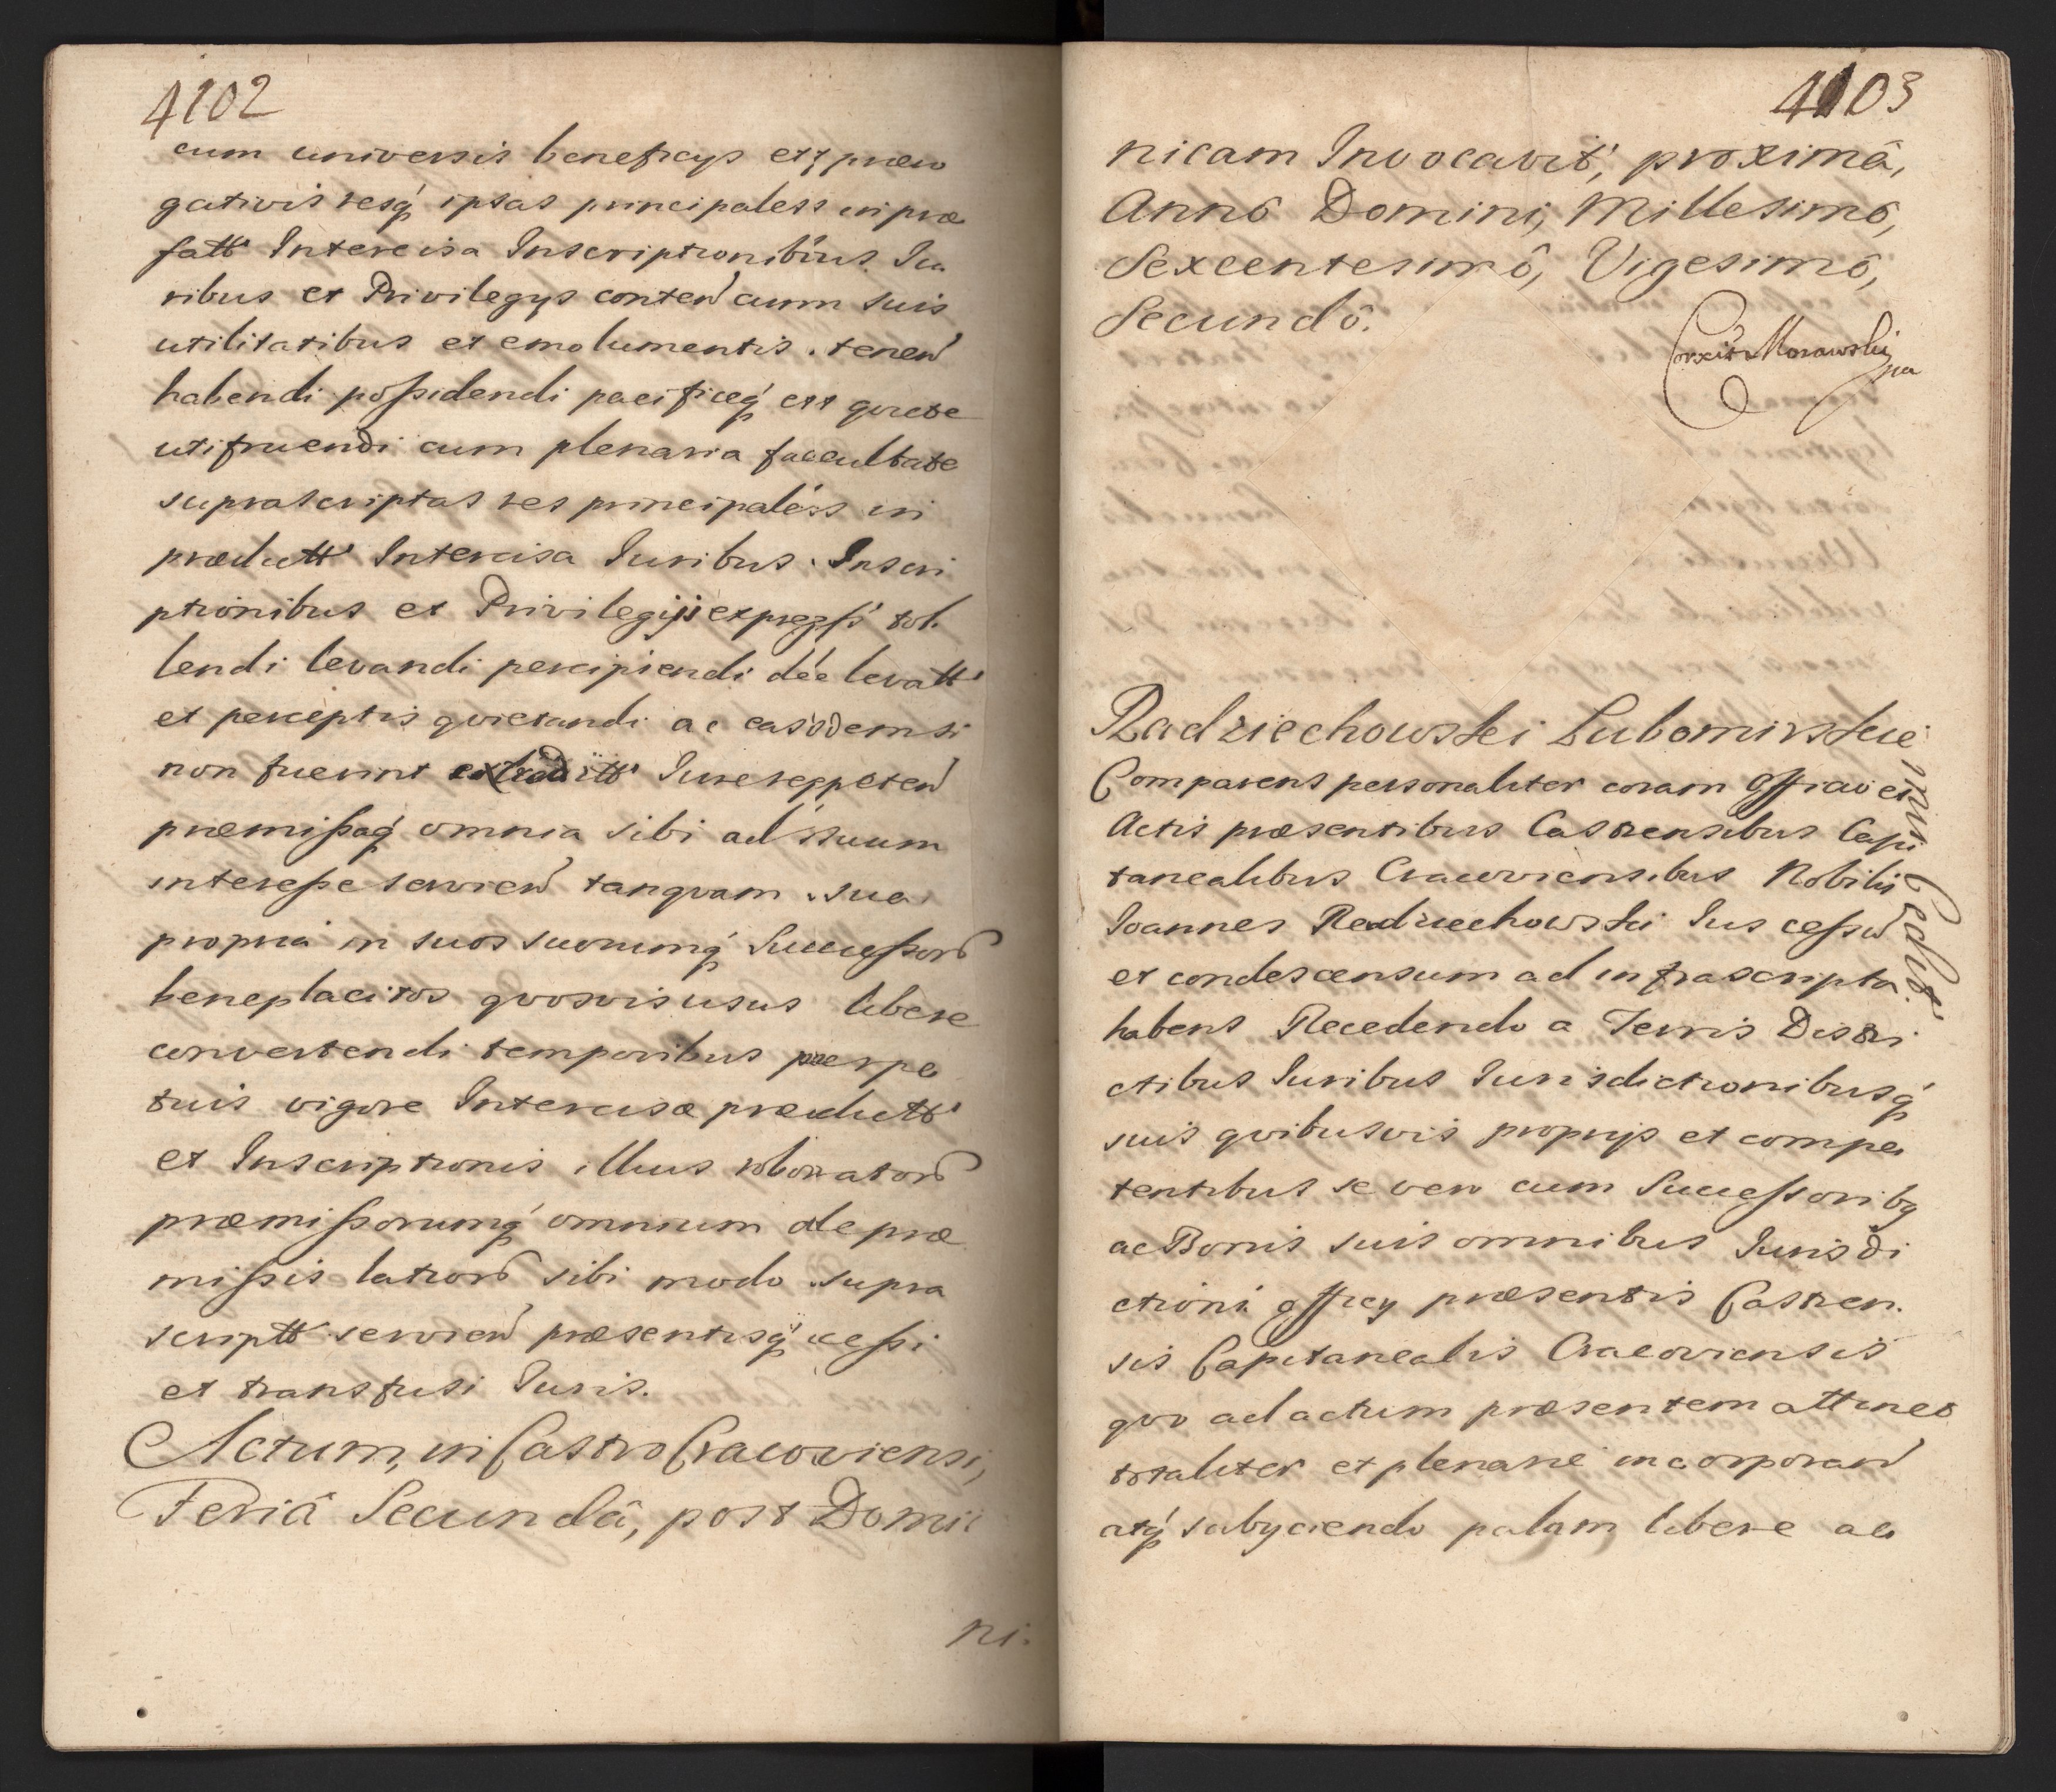 4102
cum universis beneficys ett prero
gativis resq́ ipsas principaless in præ
fatt Intercisa Inscriptionibus Iu
ribus et Privilegys conten cum suis
utilitatibus et emolumentis tenen
habendi possidendi pacificeq́ ett qviete
utifruendi cum plenaria faccultate
suprascriptas res principaless in
prædictt Intercisa Iuribus Inscri
ptionibus et Privilegijs expressis tol
lendi levandi percipiendi dée levatt
et perceptis qvietandi ac easdem si
non fuerint extraditt Iure reppeten
præmissaq́ omnia sibi ad suum
interesse servien tanqvam sua
propria in suos suorumq́ Successor
beneplacitos qvosvis usus libere
convertendi temporibus perpe
tuis vigore Intercisæ prædictt
et Inscriptionis illius roborator
præmissorumq́ omnium de præ
missis lator sibi modo supra
scriptt servien præsentisq́ cessi
et transfusi Iuris.
Actum, in Castro Cracoviensi,
Feriâ Secundâ, post Domi
ni.
4103
nicam Invocavit, proximâ,
Annô Domini, Millesimô,
Sexcentesimô, Vigesimô,
Secundô.
Corxit Morawski
Radziechowski Lubomirskie
mu Cedit
Comparens personaliter coram Officio et
Actis præsentibus Castrensibus Capi
tanealibus Cracoviensibus Nobilis
Ioannes Radziechowski Ius cessum
et condescensum ad infrascripta
habens Recedendo a Terris Distri
ctibus Iuribus Iurisdictionibusq́
suis qvibusvis proprys et compe
tentibus se vero cum Successoribq
ac Bonis suis omnibus Iurisdi
ctioni Officy præsentis Castren
sis Capitanealis Cracoviensis
qvo ad actum præsentem attinet
totaliter et plenarie incorporan
atq́ subyciendo palam libere ac